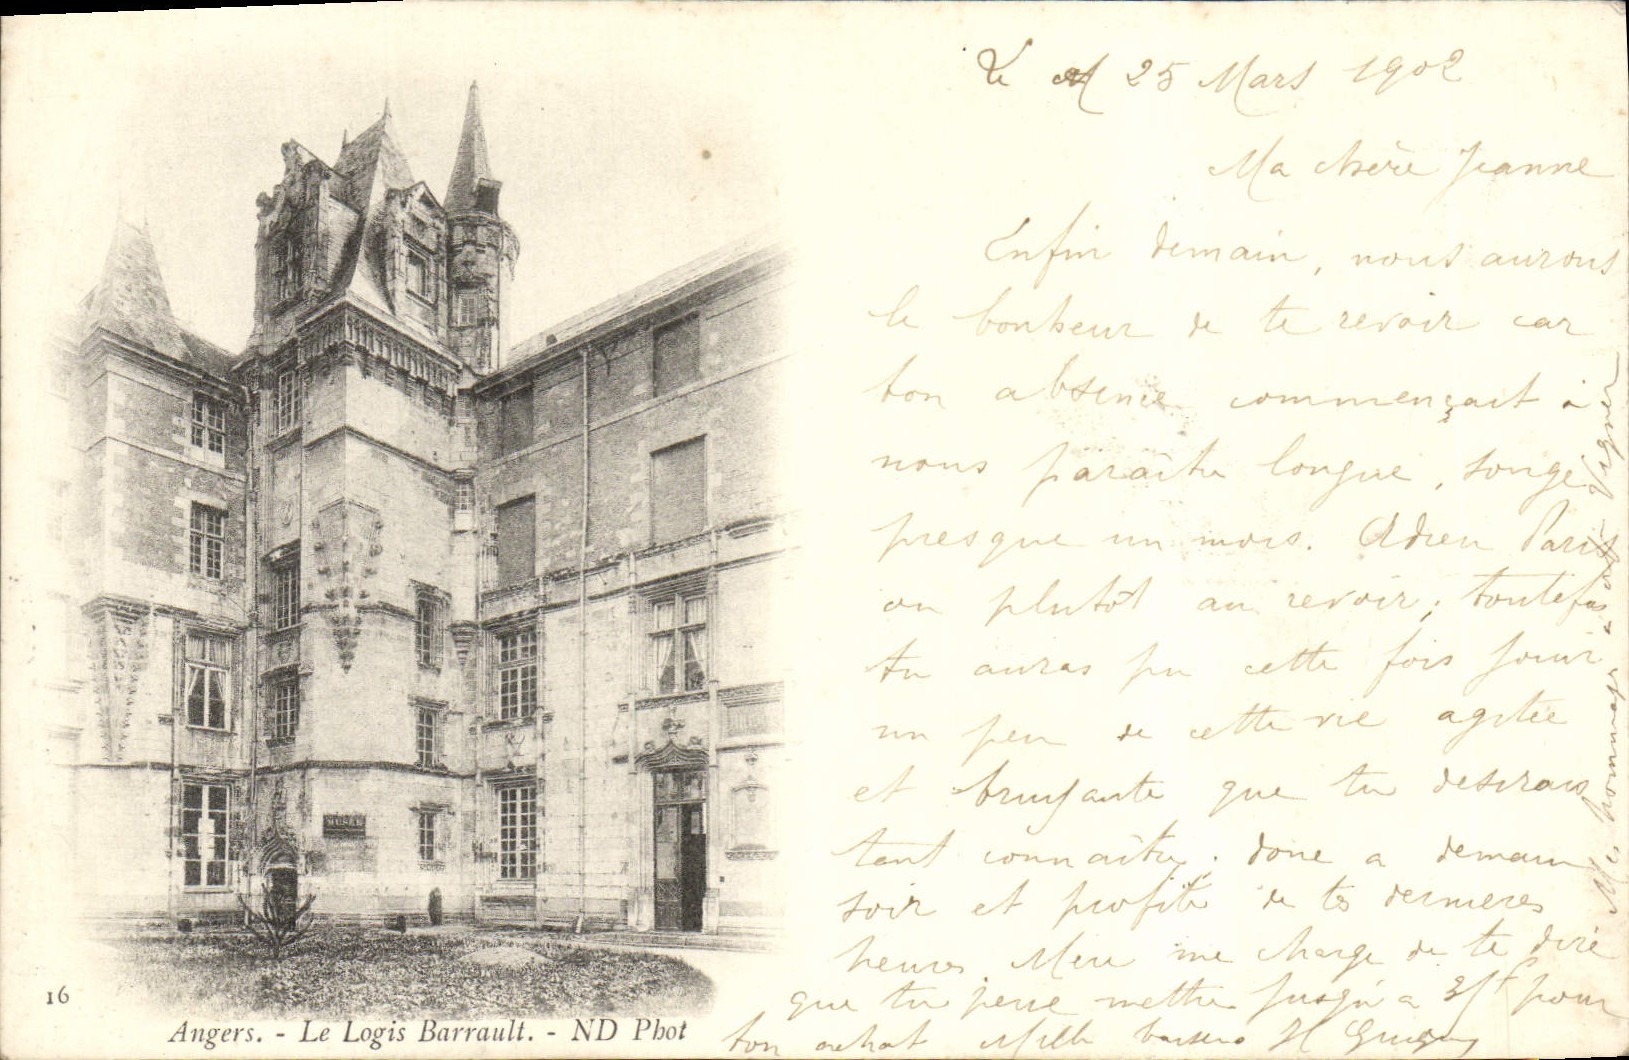 Le 25 Mars 1902
Ma chère Jeanne
Enfin demain, nous aurons
le bonheur de te revoir car
ton absence commençait à
nous paraître longue, songe
presque un mois. Adieu Paris
ou plutôt au revoir; toutefois
tu auras pu cette fois jouir
un peu de cette vie agitée
et bruyante que tu desirais
tant connaître. donc a demain
soir et profite de tes dernieres
heures. Mère me charge de te dire
que tu peux mettre jusqu'a 3f pour
ton achat Mille baisers H
Mes hommages à Vigner
MUSÉE
16
Angers. - Le Logis Barrault. - ND Phot